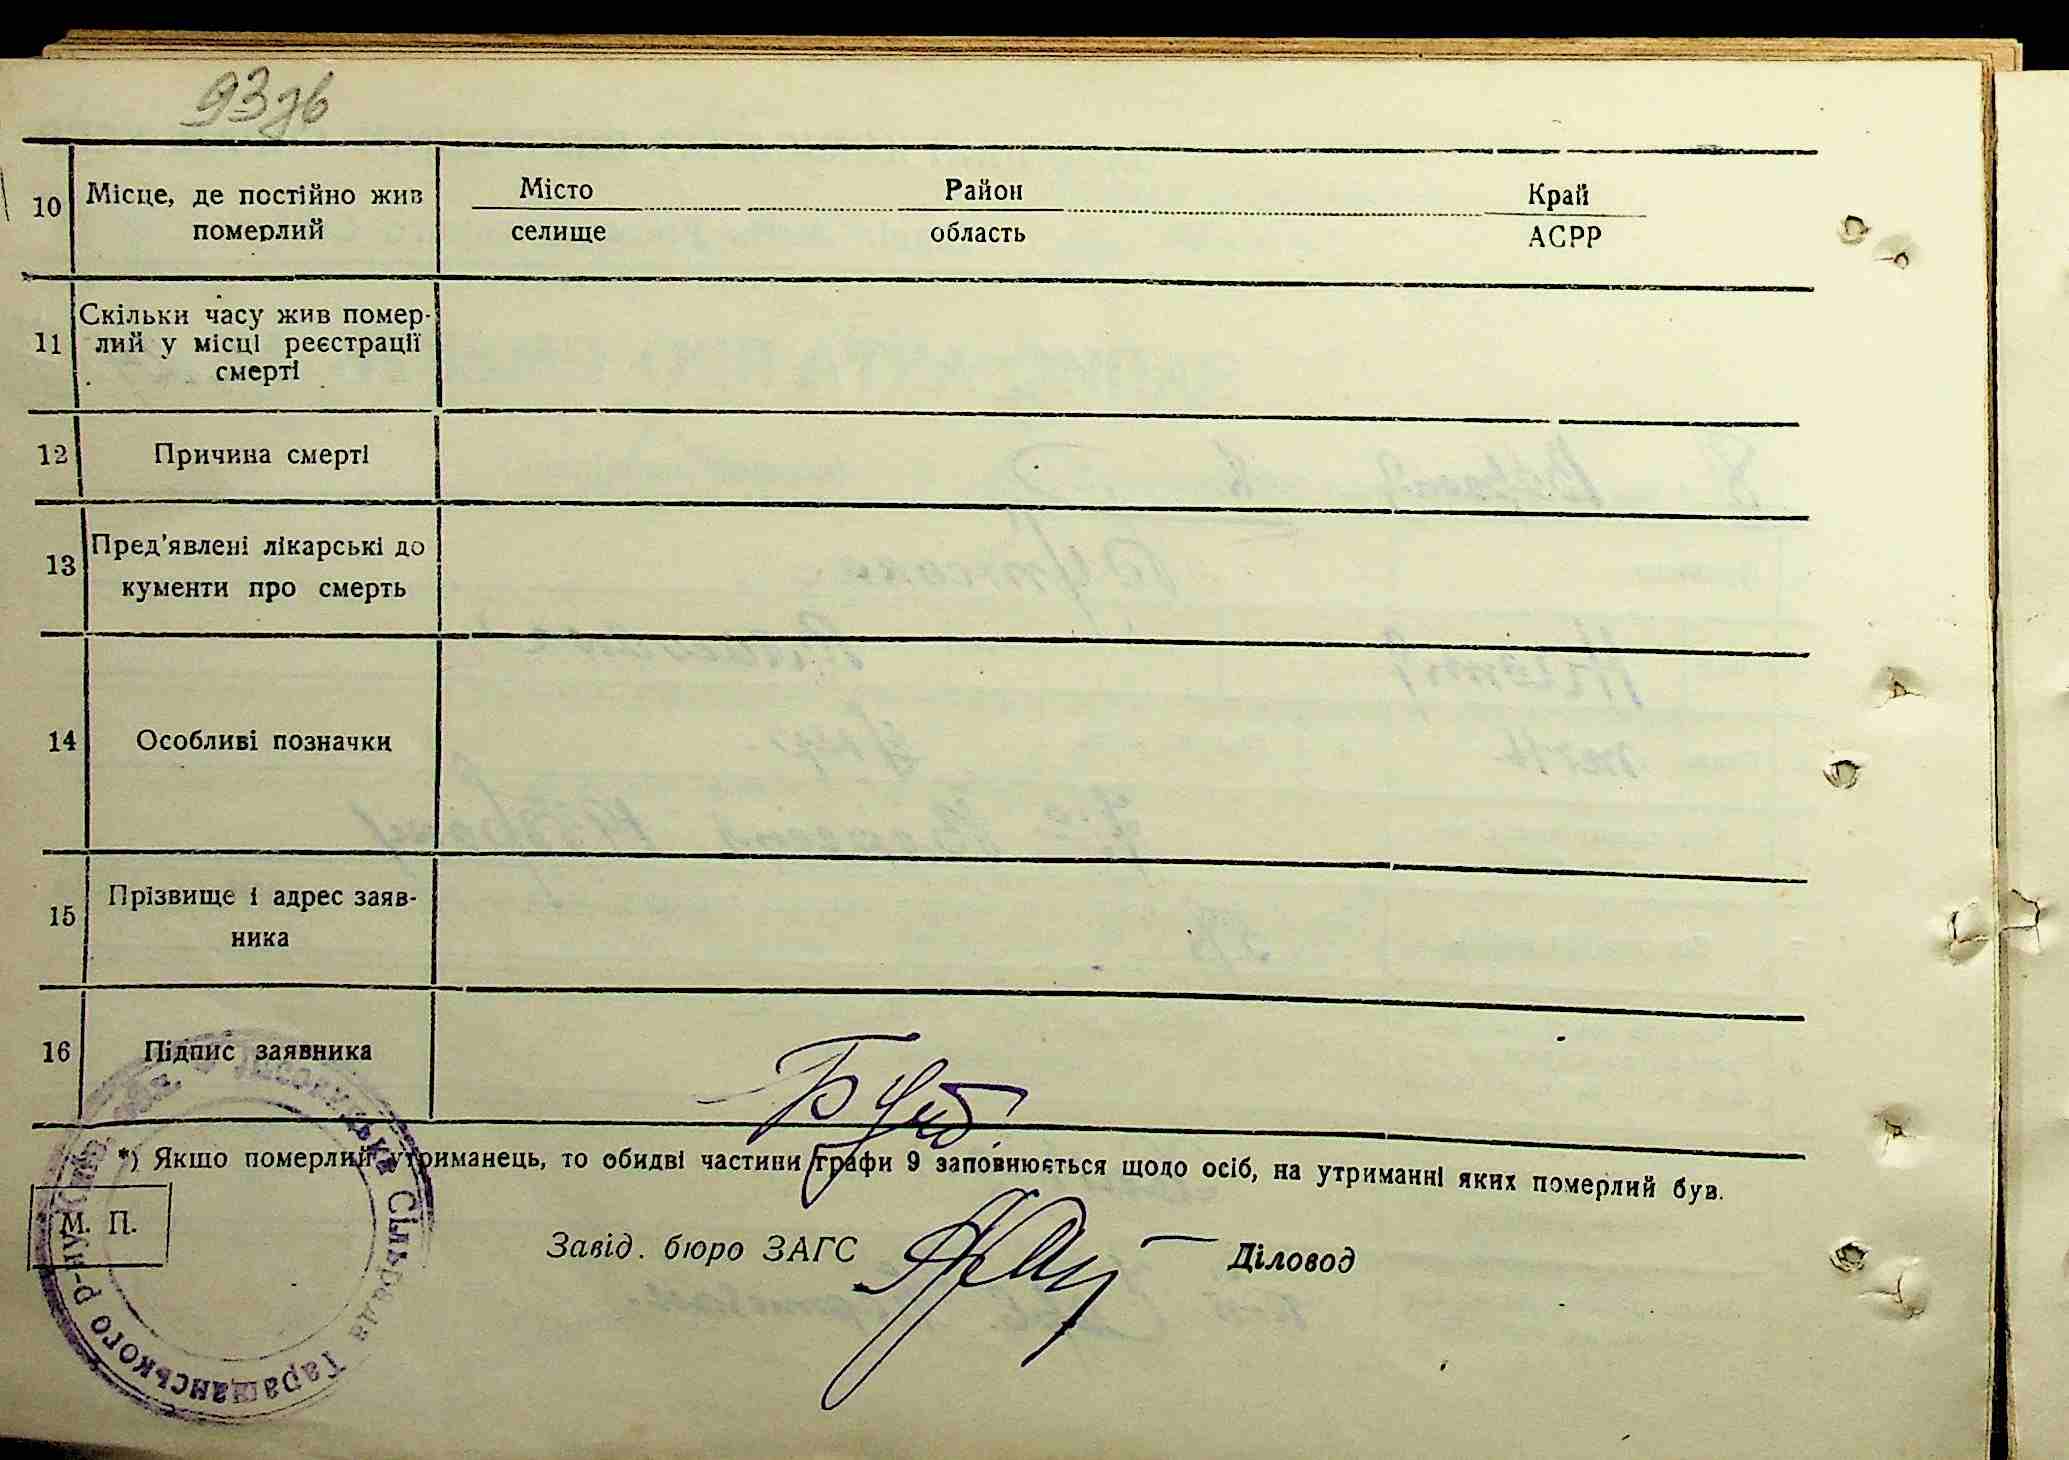 93зв
10 Місце, де постійно жив Місто Район Край
померлий селище область АСРР
11 Скільки часу жив помер-
лий у місці реєстрації
смерті
12 Причина смерті
13 Пред'явлені лікарські до
кументи про смерть
14 Особливі позначки
15 Прізвище і адрес заяв-
ника
16 Підпис заявника
*) Якщо померлий утриманець, то обидві частини графи 9 заповнюється щодо осіб, на утриманні яких померлий був.
М. П.
Завід. бюро ЗАГС Діловод
Сільрада Таращанського р-ну